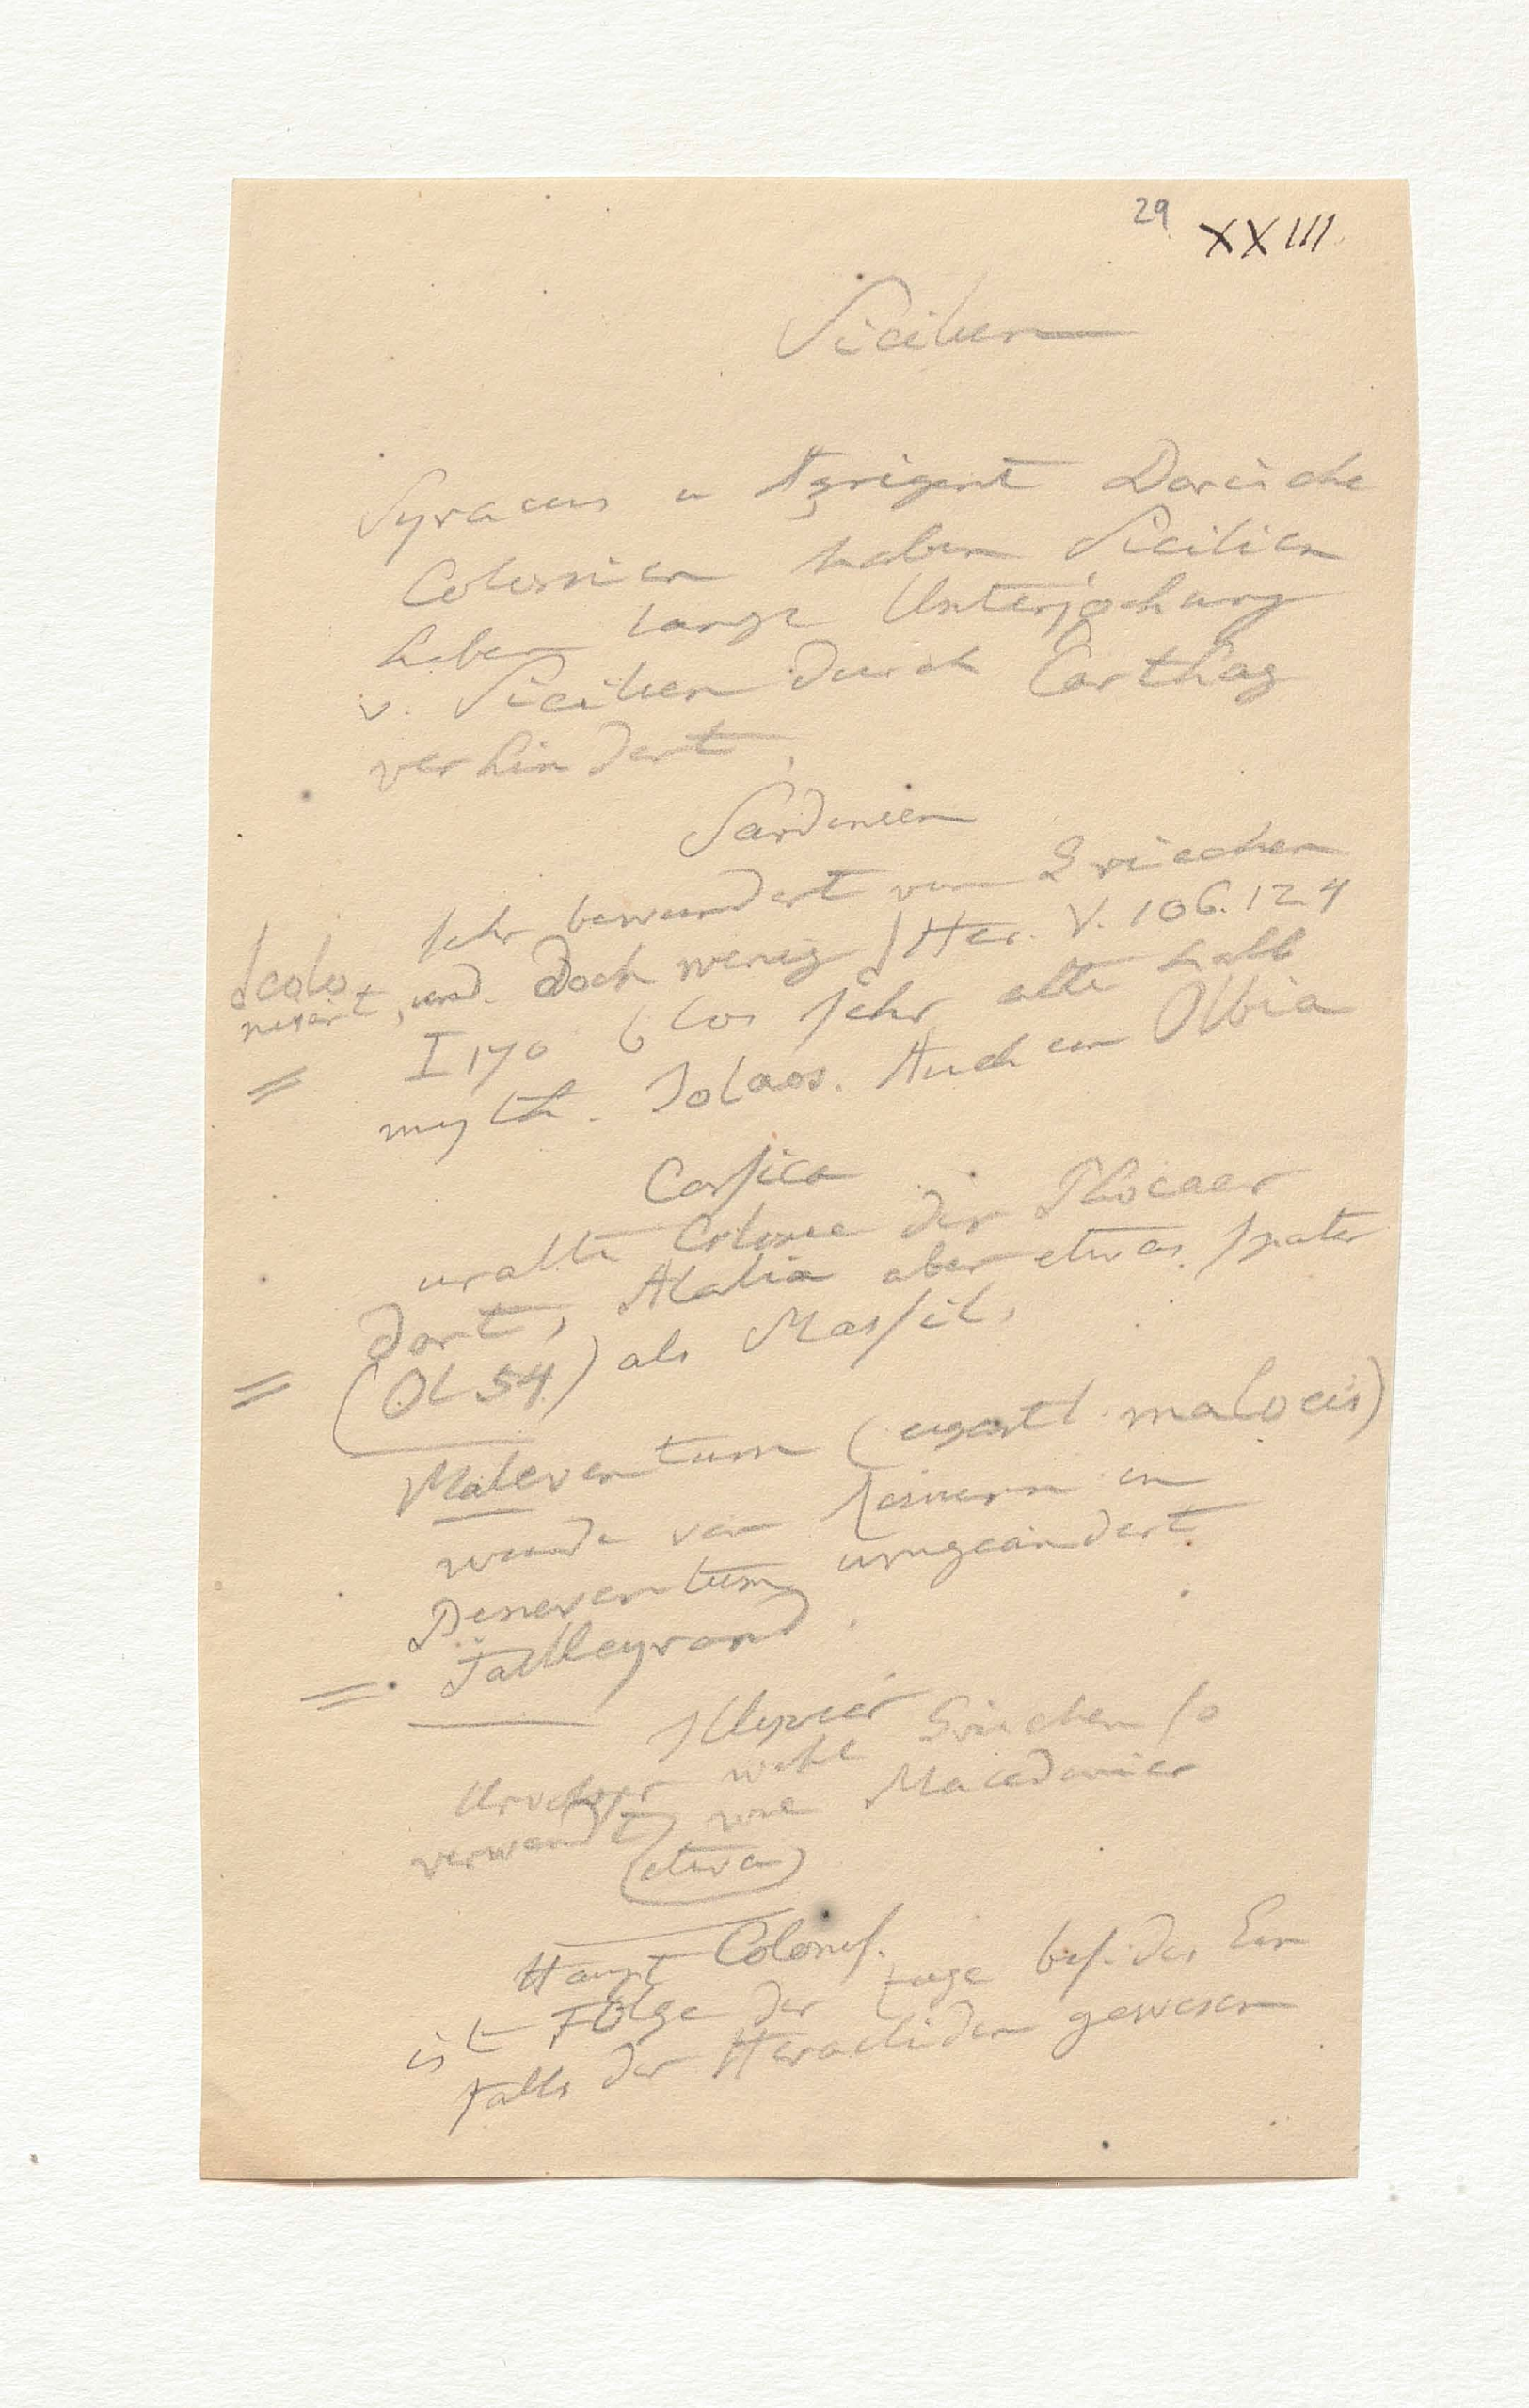 29 XXIII.
Sicilien
Syracus u Agrigent Dorische
Colonnien haben Sicilien
haben lange Unterjochung
v. Sicilien durch Carthag
verhindert,
Sardinien
sehr bewundert von Griechen
und. doch wenig / Her. V. 106. 124
colo
nisirt,
I 170 blos sehr alte halb
myth. Jolaos. Auch ein Olbia
Corsica
uralte Colonie der Phocaer
dort, Alalia aber etwas später
(Ol 54) als Massil,
Maleventum (eigentl. maloeis)
wurde von Römern in
Beneventum umgeändert
Talleyrand
Illyrier
Urvolk wohl Griechen so
verwandt wie Macedonier
(etwa)
Haupt Colonis.
ist Folge der Züge bes. des Ein
falls der Heracliden gewesen